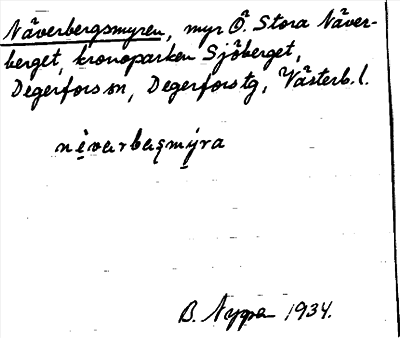 Näverbergsmyren, myr Ö. Stora Näver-
berget, kronoparken Sjöberget,
Degerfors sn, Degerfors tg, Västerb. l.
nèvarbaşmýra
B. Nygren 1934.